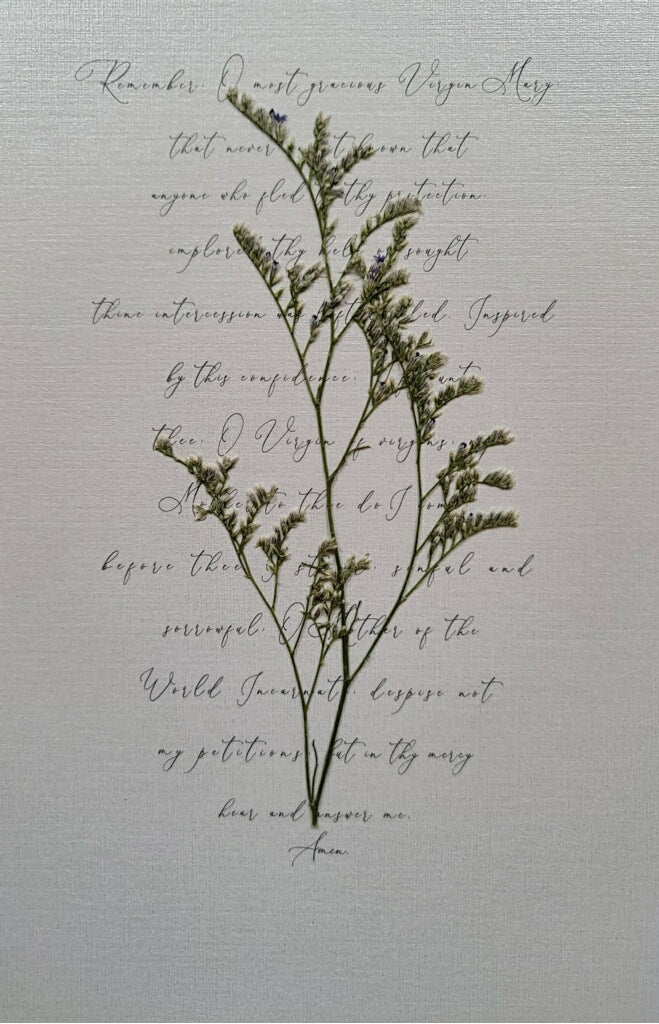 Remember, O most gracious Virgin Mary
that never was it known that
anyone who fled to thy protection,
implored thy help or sought
thine intercession was left unaided. Inspired
by this confidence, I fly unto
thee, O Virgin of virgins,
Mother to thee do I come
before thee I stand sinful and
sorrowful. O Mother of the
World Incarnate, despise not
my petitions, but in thy mercy
hear and answer me.
Amen.